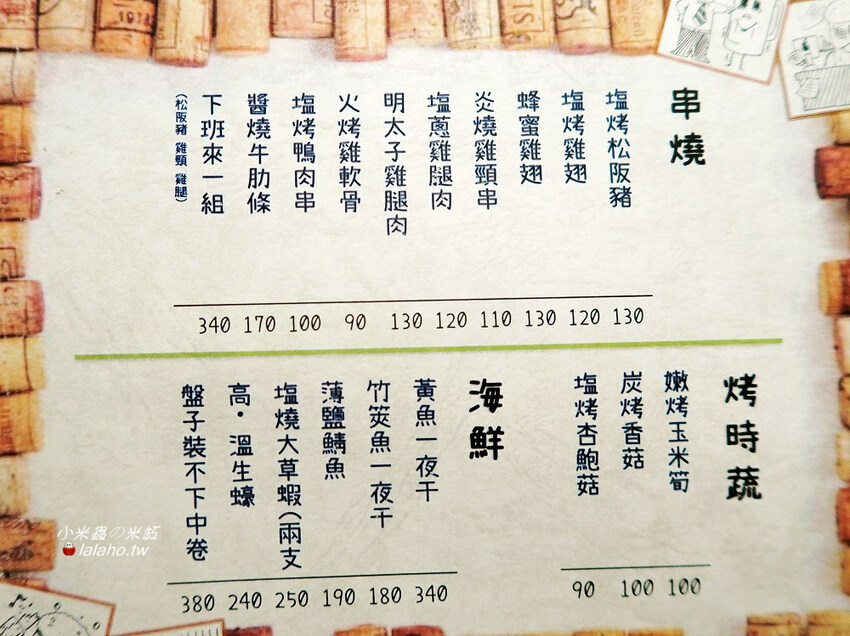 串燒
塩烤松阪豬 130
塩烤雞翅 120
蜂蜜雞翅 130
炎燒雞頸串 110
塩蔥雞腿肉 120
明太子雞腿肉 130
火烤雞軟骨 90
塩烤鴨肉串 100
醬燒牛肋條 170
下班來一組 340
(松阪豬 雞頸 雞腿)
烤時蔬
嫩烤玉米筍 100
炭烤香菇 100
塩烤杏鮑菇 90
海鮮
黃魚一夜干 340
竹筴魚一夜干 180
薄鹽鯖魚 190
塩燒大草蝦(兩支 250
高・溫生蠔 240
盤子裝不下中卷 380
小米蟲の米缸
lalaho.tw